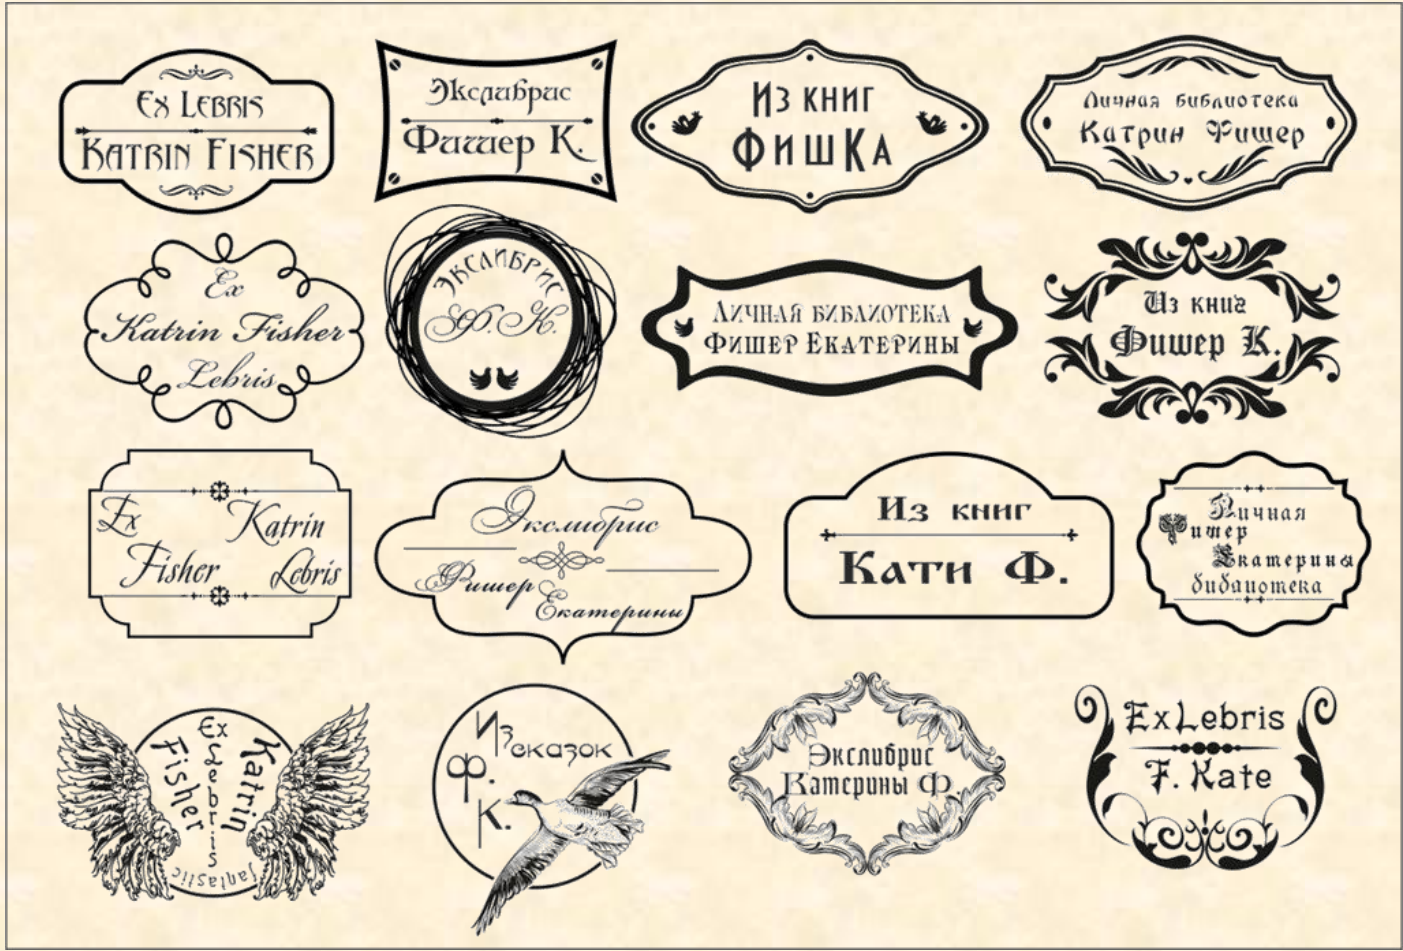 Ex Lebris
Katrin Fisher
Экслибрис
Фишер К.
Из книг
ФишКа
Личная библиотека
Катрин Фишер
Ex
Katrin Fisher
Lebris
Экслибрис
Ф. К.
Личная библиотека
Фишер Екатерины
Из книг
Фишер К.
Ex Katrin
Fisher Lebris
Экслибрис
Фишер
Екатерины
Из книг
Кати Ф.
Личная
Фишер
Екатерины
библиотека
Ex
Lebris
Fisher
Katrin
fantastic
Из сказок
Ф.
К.
Экслибрис
Катерины Ф.
Ex Lebris
F. Kate